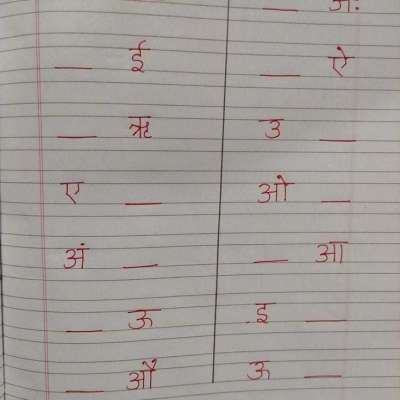 __ अः
__ ई __ ऐ
__ ऋ उ __
ए __ ओ __
अं __ __ आ
__ ऊ इ __
__ औ ऊ __